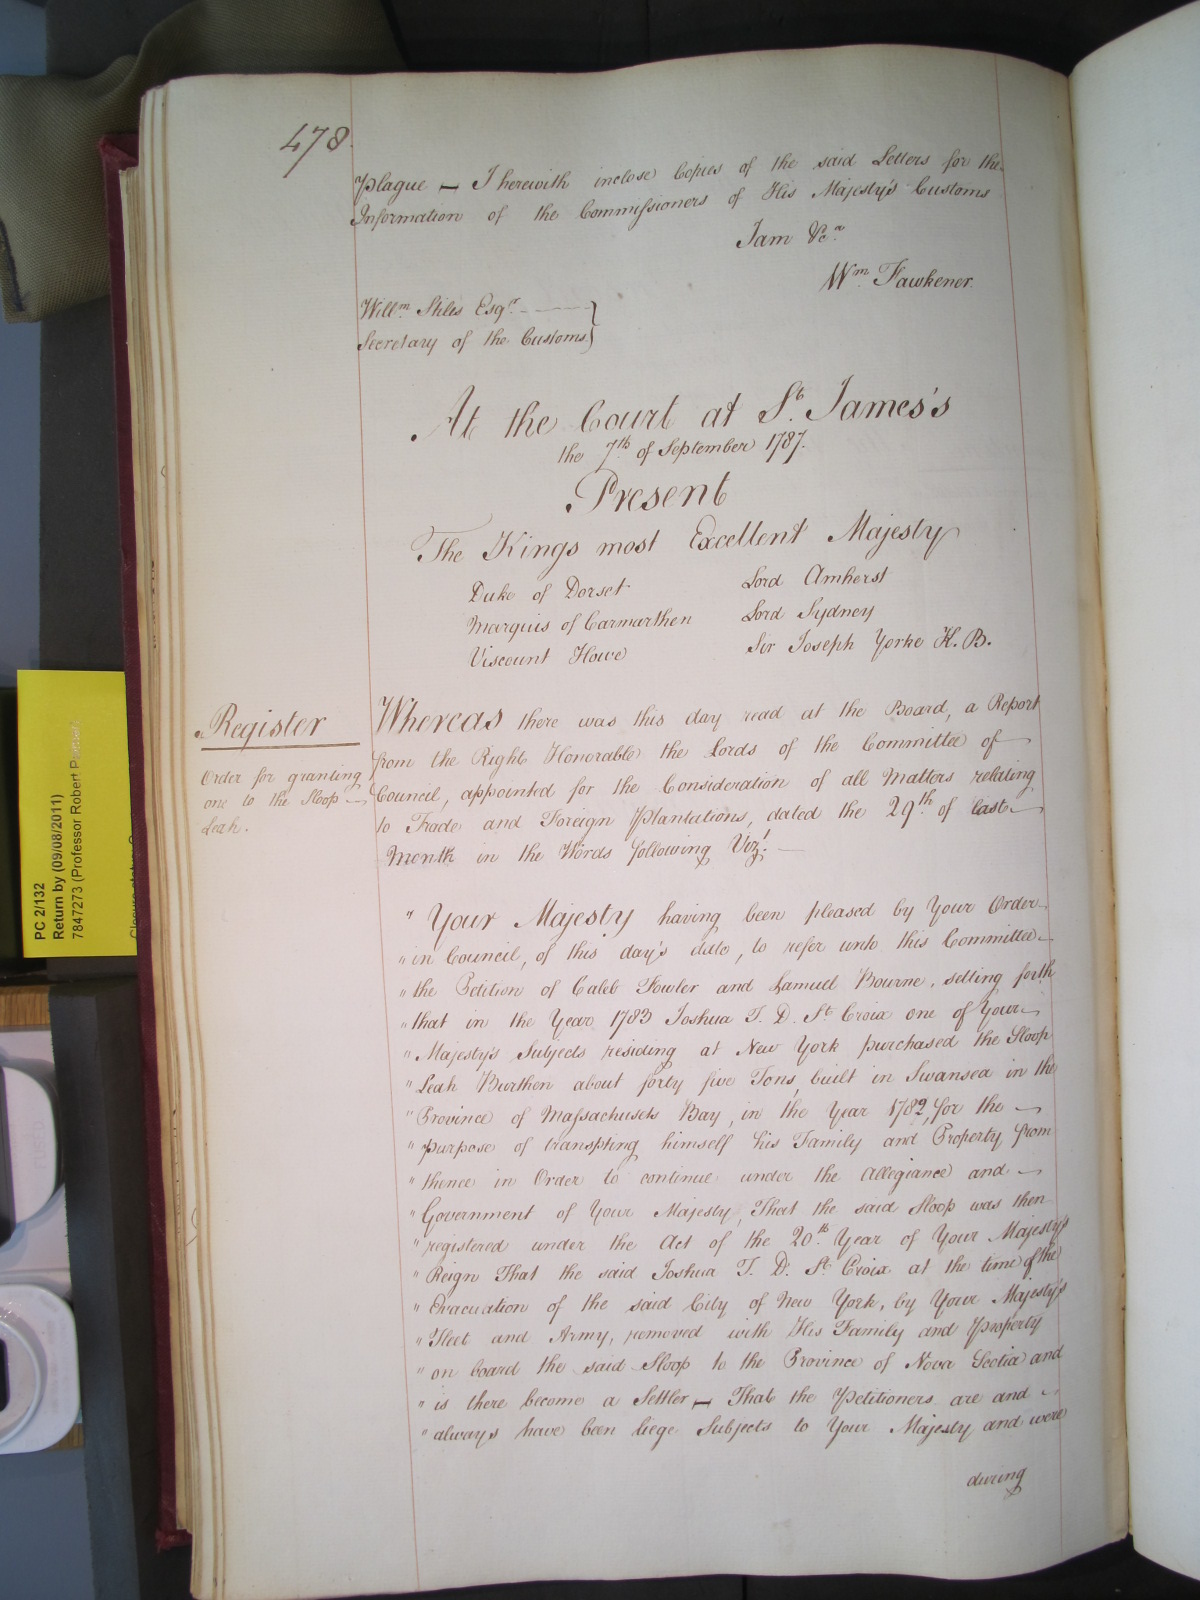 478.
Plague — I herewith inclose Copies of the said Letters for the
Information of the Commissioners of His Majesty's Customs
I am &ca.
Wm. Fawkener.
Willm. Stiles Esqr. - - - }
Secretary of the Customs }
At the Court at St. James's
the 7th. of September 1787.
Present
The Kings most Excellent Majesty
Duke of Dorset
Lord Amherst
Marquis of Carmarthen
Lord Sydney
Viscount Howe
Sir Joseph Yorke K.B.
Register
Order for granting
one to the Sloop —
Leah.
Whereas there was this day read at the Board, a Report
from the Right Honorable the Lords of the Committee of —
Council, appointed for the Consideration of all Matters relating
to Trade and Foreign Plantations, dated the 29th. of last —
Month in the Words following Vizt. —
" Your Majesty having been pleased by Your Order —
" in Council, of this day's date, to refer unto this Committee —
" the Petition of Caleb Fowler and Samuel Bourne, setting forth
" that in the Year 1783 Joshua T. D. St. Croix one of Your —
" Majesty's Subjects residing at New York purchased the Sloop
" Leah Burthen about forty five Tons, built in Swansea in the
" Province of Massachusets Bay, in the Year 1782, for the —
" purpose of transpting himself his Family and Property from
" thence in Order to continue under the Allegiance and —
" Government of Your Majesty, That the said Sloop was then
" registered under the Act of the 20th. Year of Your Majesty's
" Reign That the said Joshua T. D. St. Croix at the time of the
" Evacuation of the said City of New York, by Your Majesty's
" Fleet and Army, removed with His Family and Property
" on board the said Sloop to the Province of Nova Scotia and
" is there become a Settler — That the Petitioners are and —
" always have been liege Subjects to Your Majesty and were
during
PC 2/132
Return by (09/08/2011)
7847273 (Professor Robert